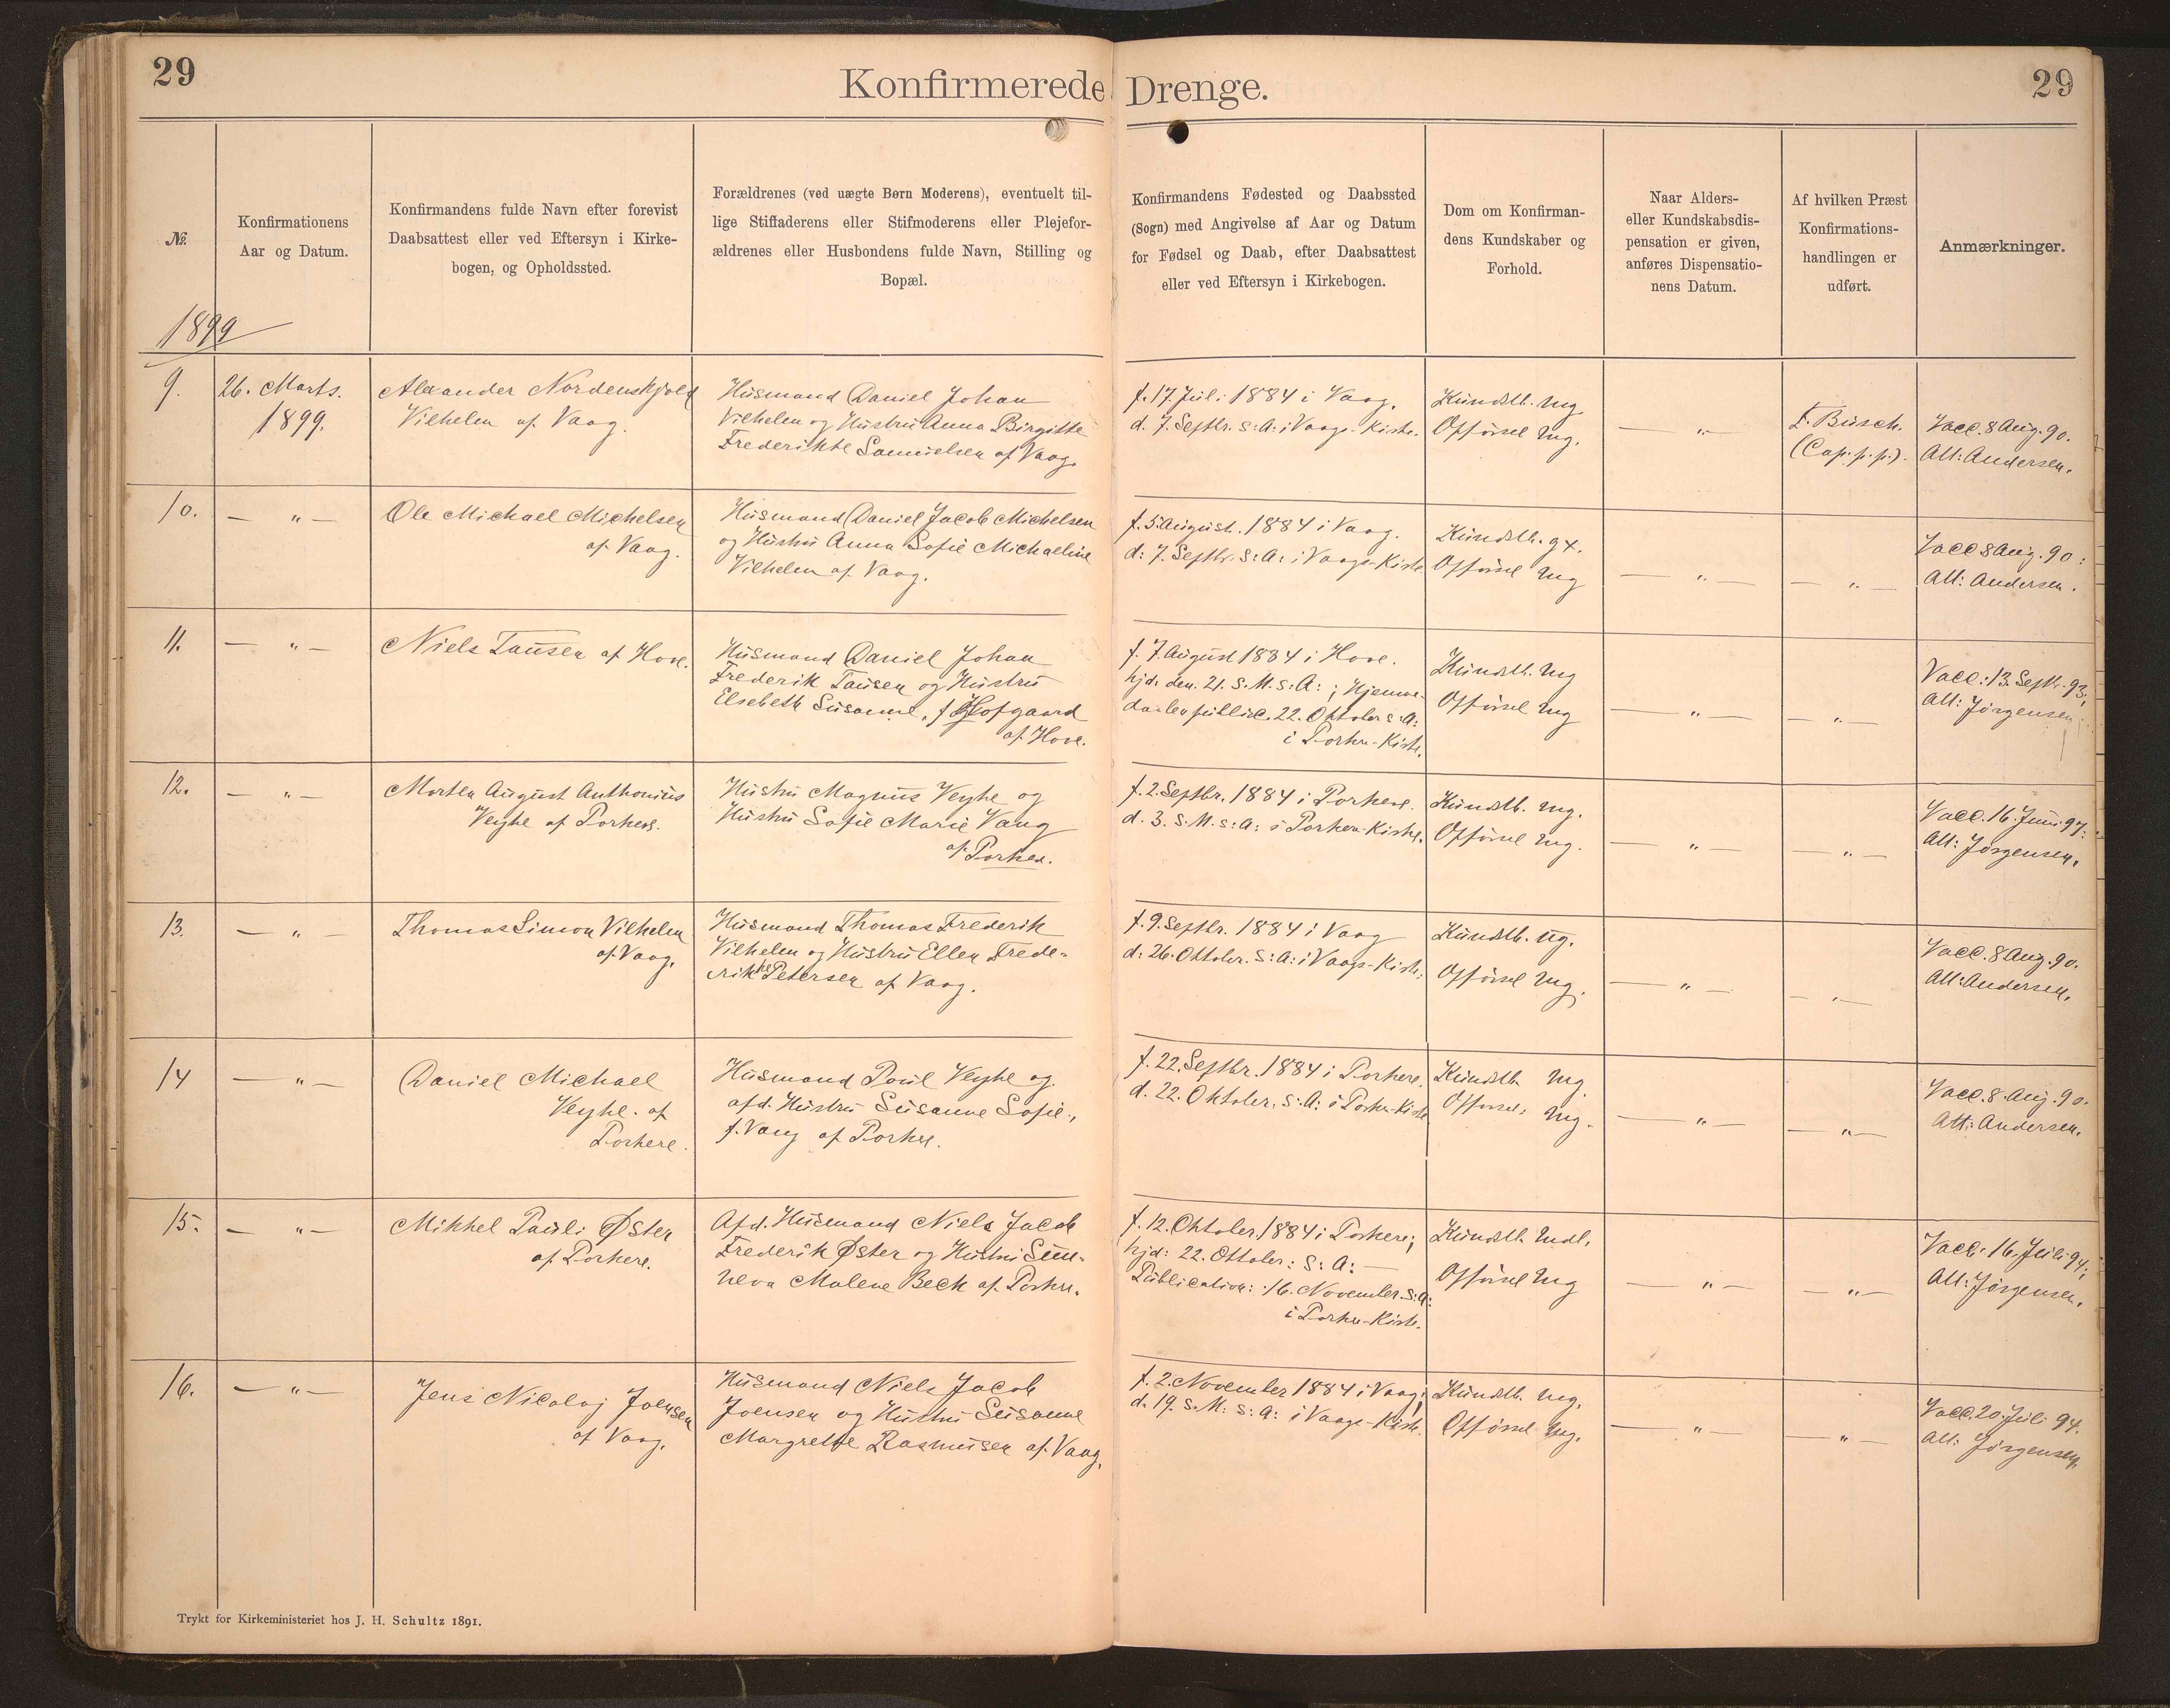 29
Konfirmerede Drenge.
29
No.
Konfirmationens
Aar og Datum.
Konfirmandens fulde Navn efter forevist
Daabsattest eller ved Eftersyn i Kirke-
bogen, og Opholdssted.
Forældrenes (ved uægte Børn Moderens), eventuelt til-
lige Stiffaderens eller Stifmoderens eller Plejefor-
ældrenes eller Husbondens fulde Navn, Stilling og
Bopæl.
Konfirmandens Fødested og Daabssted
(Sogn) med Angivelse af Aar og Datum
for Fødsel og Daab, efter Daabsattest
eller ved Eftersyn i Kirkebogen.
Dom om Konfirman-
dens Kundskaber og
Forhold.
Naar Alders-
eller Kundskabsdis-
pensation er given,
anføres Dispensatio-
nens Datum.
Af hvilken Præst
Konfirmations-
handlingen er
udført.
Anmærkninger.
1899
9.
26. Marts.
1899.
Alexander Nordenskjold
Vilhelm af Vaag.
Husmand Daniel Johan
Vilhelm og Hustru Anna Birgitte
Frederikke Samuelsen af Vaag.
f. 17. Juli 1884 i Vaag.
d. 7. Septbr. s: A: i Vaags-Kirke.
Kundsk. mg
Opførsel mg.
— " —
F. Busch.
(Cap. p. p.).
Vacc. 8 Aug. 90.
Att: Andersen.
10.
— " —
Ole Michael Michelsen
af Vaag.
Husmand Daniel Jacob Michelsen
og Hustru Anna Sofie Michaeline
Vilhelm af Vaag.
f. 5. August. 1884 i Vaag.
d: 7. Septbr. s: A: i Vaags-Kirke
Kundsk. gx.
Opførsel mg
— " —
— " —
Vacc 8 Aug. 90:
Att: Andersen.
11.
— " —
Niels Tausen af Hove.
Husmand Daniel Johan
Frederik Tausen og Hustru
Elsebeth Susanne, f Hofgaard
af Hove.
f. 7. August 1884 i Hove.
hjd. den. 21. s. M. s: A: ; Hjemme-
daaben public. 22. Oktober s: A:
i Porkere-Kirke.
Kundsk. mg
Opførsel mg
— " —
— " —
Vacc: 13. Septbr. 93;
Att: Jørgensen.
12.
— " —
Morten August Anthonius
Veyhe af Porkere.
Hustru Magnus Veyhe og
Hustru Sofie Marie Vang
af Porkere.
f. 2. Septbr. 1884 i Porkere.
d. 3. s. M. s: A: i Porkere-Kirke.
Kundsk. mg.
Opførsel mg.
— " —
— " —
Vacc. 16. Juni 97.
Att: Jørgensen.
13.
— " —
Thomas Simon Vilhelm
af Vaag.
Husmand Thomas Frederik
Vilhelm og Hustru Ellen Frede-
rikke Petersen af Vaag.
f. 9. Septbr. 1884 i Vaag
d: 26. Oktober. s: A: i Vaags-Kirke:
Kundsk. ug.
Opførsel mg.
— " —
— " —
Vacc. 8 Aug. 90.
Att: Andersen.
14
— " —
Daniel Michael
Veyhe. af
Porkere.
Husmand Poul Veyhe og
afd. Hustru Susanne Sofie.,
f. Vang af Porkere.
f. 22. Septbr. 1884 i Porkere.
d. 22. Oktober. s: A: i Porkere-Kirke
Kundsk. mg
Opførsel: mg.
— " —
— " —
Vacc. 8. Aug. 90.
Att: Andersen.
15.
— " —
Mikkel Pauli Øster
af Porkere.
Afd. Husmand Niels Jacob
Frederik Øster og Hustru Sun-
neva Malene Beck af Porkere.
f. 12. Oktober. 1884 i Porkere;
hjd: 22. Oktober: s: A: —
Publication: 16. November s: A:
i Porkere-Kirke.
Kundsk. mdl.
Opførsel mg
— " —
— " —
Vacc. 16. Juli 94;
Att: Jørgensen.
16.
— " —
Jens Nicolaj Joensen
af Vaag.
Husmand Niels Jacob
Joensen og Hustru Susanne
Margrethe Rasmusen af Vaag.
f. 2. November 1884 i Vaag;
d. 19. s. M: s: A: i Vaags-Kirke.
Kundsk. mg.
Opførsel mg.
— " —
— " —
Vacc. 20. Juli 94.
Att: Jørgensen.
Trykt for Kirkeministeriet hos J. H. Schultz 1891.